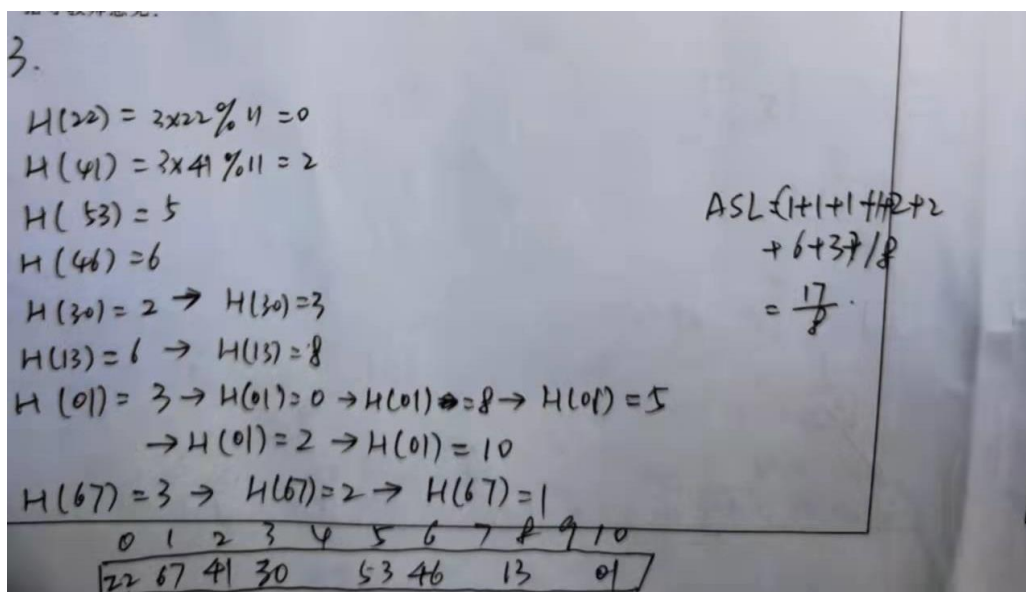 3.
H(22) = 3x22 % 11 = 0
H(41) = 3x41 % 11 = 2
H(53) = 5
H(46) = 6
H(30) = 2 → H(30) = 3
H(13) = 6 → H(13) = 8
H(01) = 3 → H(01) = 0 → H(01) = 8 → H(01) = 5
→ H(01) = 2 → H(01) = 10
H(67) = 3 → H(67) = 2 → H(67) = 1
ASL = (1+1+1+1+2+2
+6+3)/8
= 17/8
0 1 2 3 4 5 6 7 8 9 10
22 67 41 30 53 46 13 01